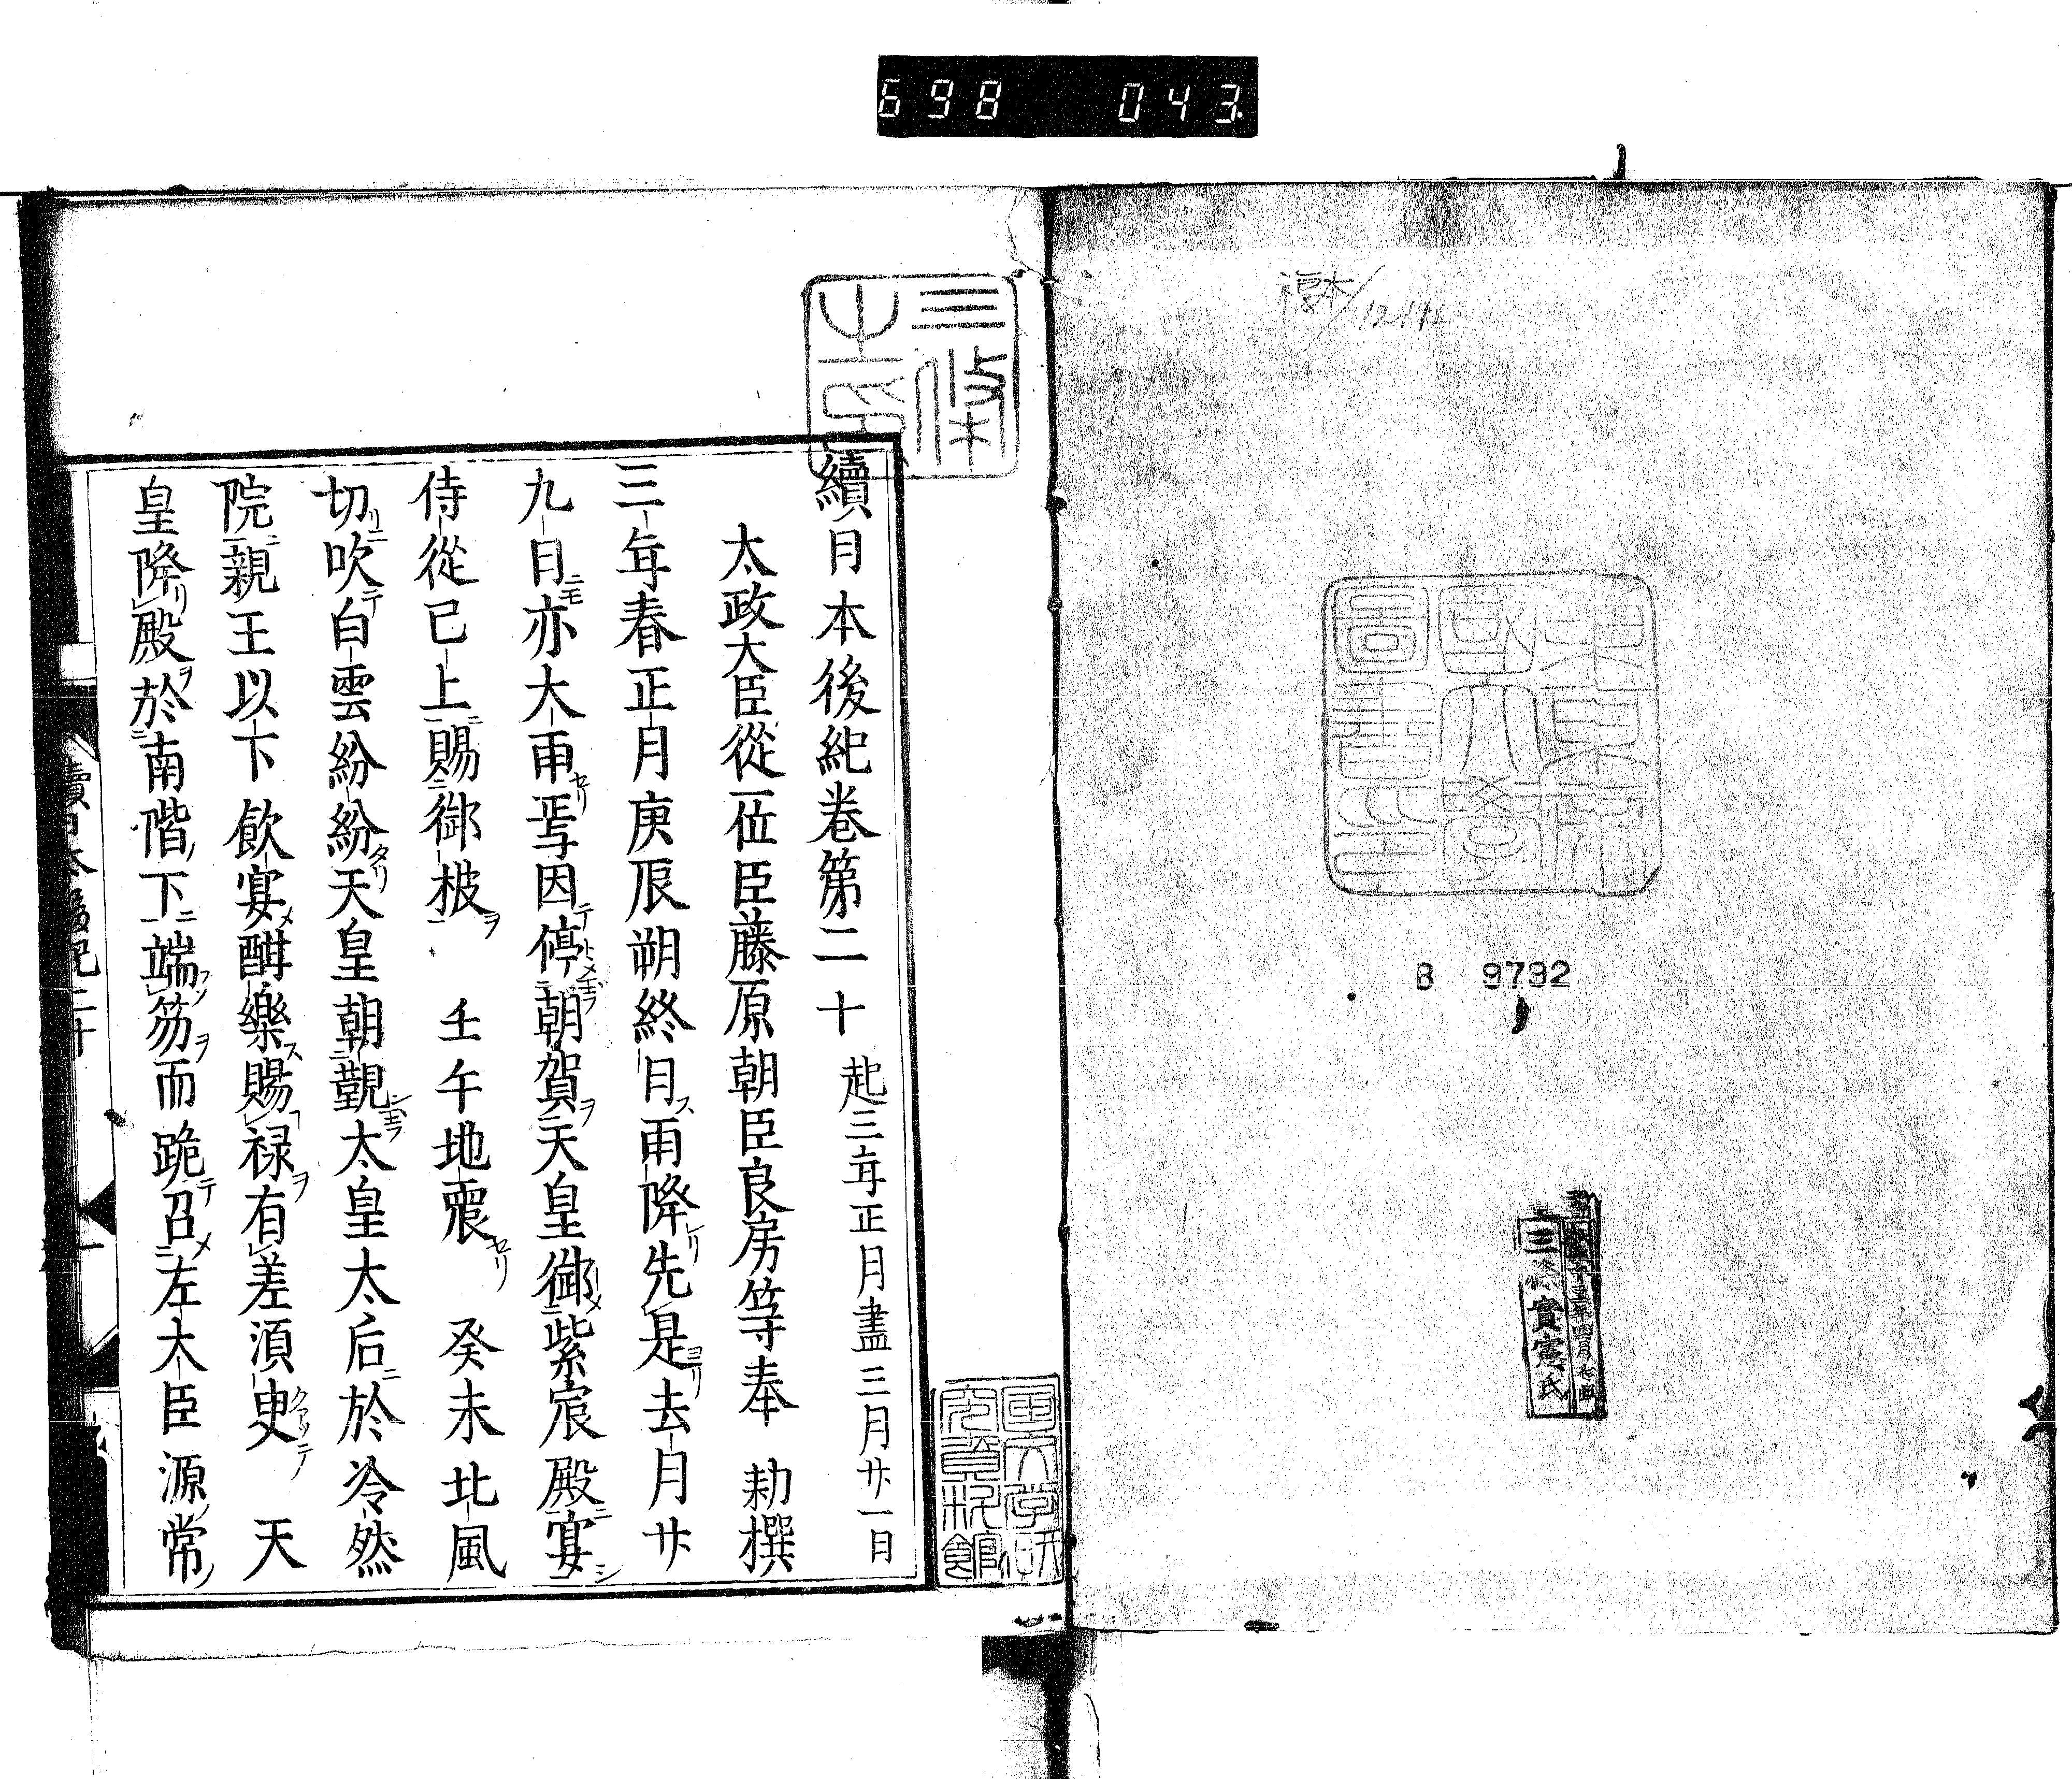 698 043
複本/
B 9732
三條實憲氏
續日本後紀卷第二十 起三年正月盡三月廿一日
太政大臣從一位臣藤原朝臣良房等奉 勅撰
三年春正月庚辰朔終日雨降先是去月廿
九日亦大雨焉因停朝賀天皇御紫宸殿宴
侍從已上賜御被 壬午地震 癸未北風
切吹白雲紛紛天皇朝覲太皇太后於冷然
院親王以下飲宴酣樂賜禄有差須臾 天
皇降殿於南階下端笏而跪召左大臣源常
續日本後紀二十
一